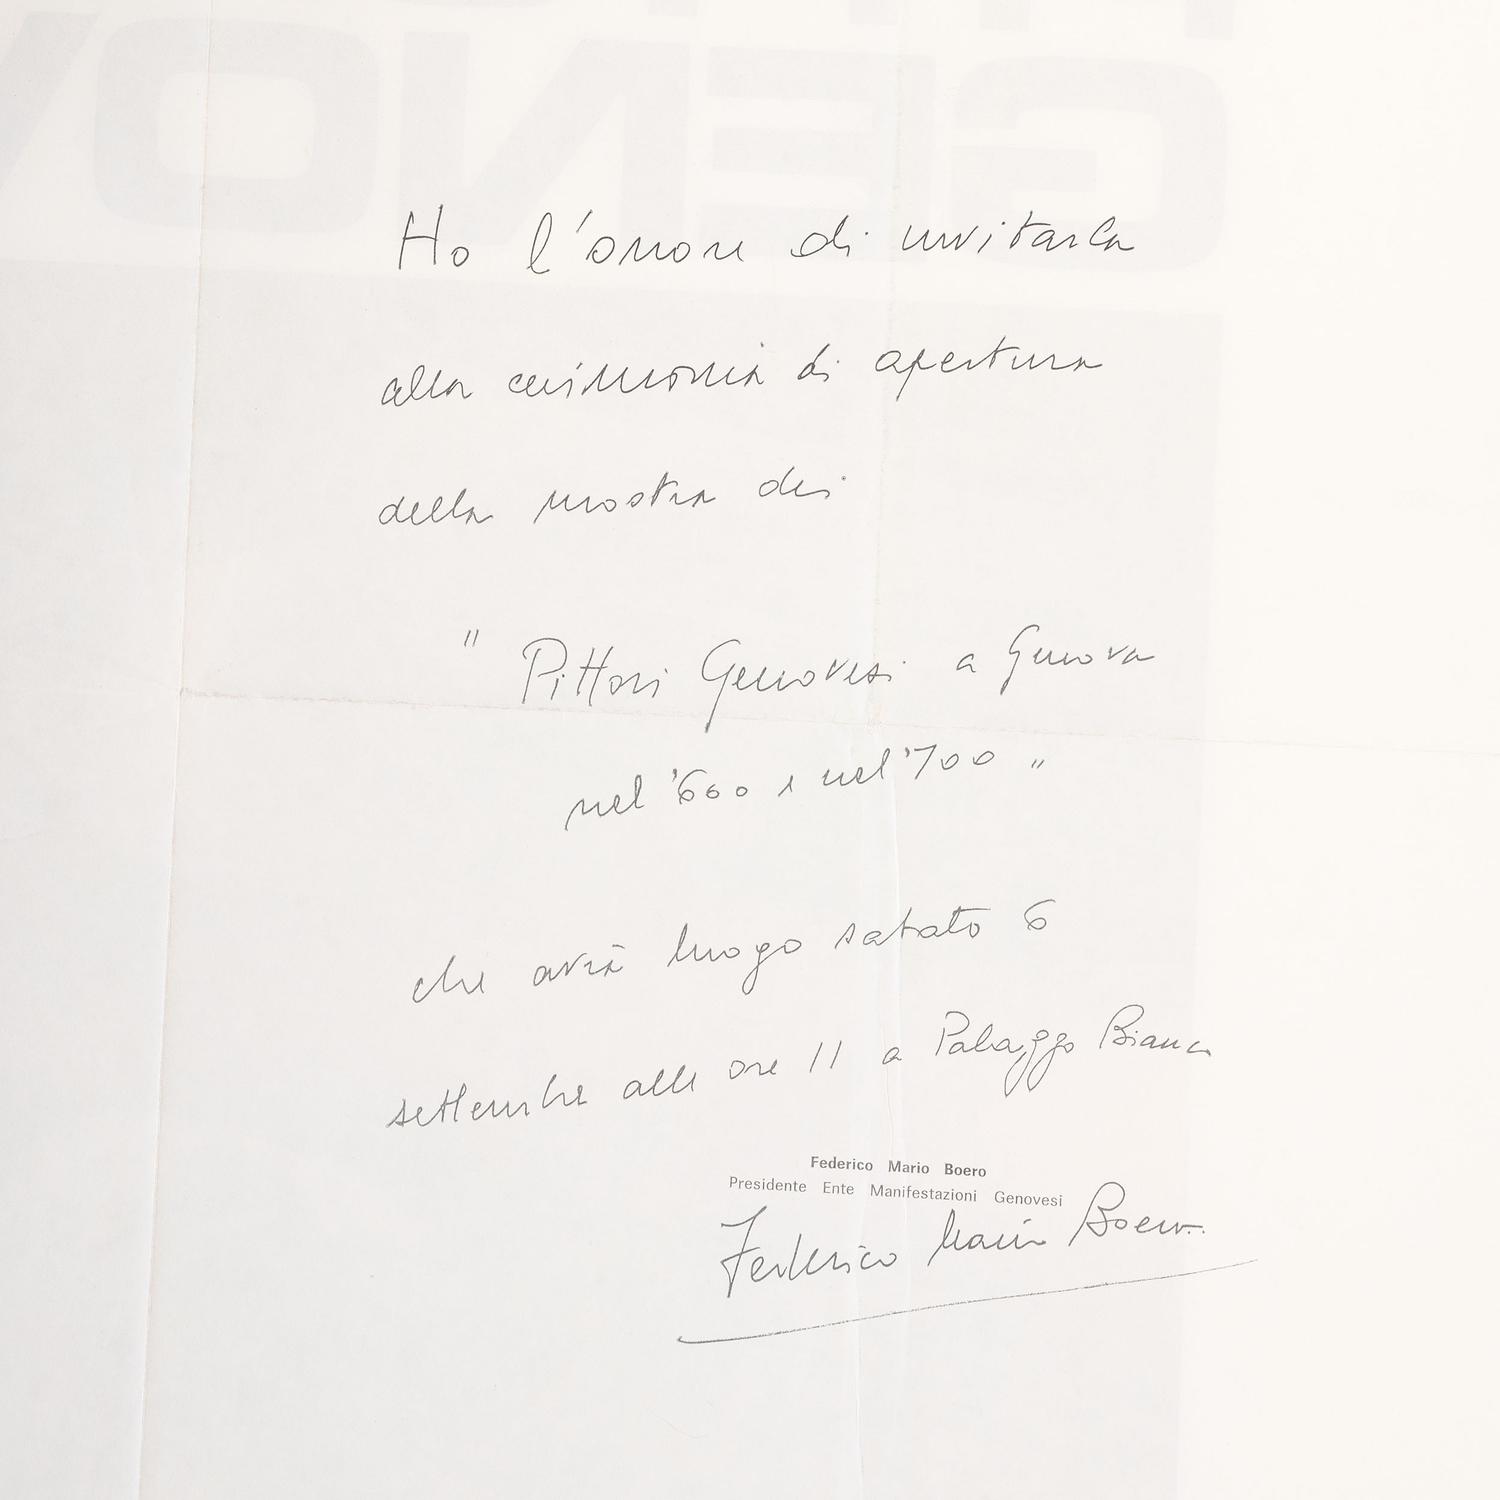 Ho l'onore di invitarla
alla cerimonia di apertura
della mostra dei
" Pittori Genovesi a Genova
nel '600 e nel '700 "
che avrà luogo sabato 6
settembre alle ore 11 a Palazzo Bianco
Federico Mario Boero
Presidente Ente Manifestazioni Genovesi
Federico Mario Boero